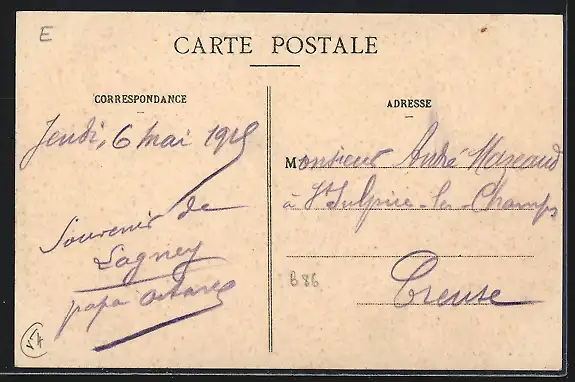 E
CARTE POSTALE
CORRESPONDANCE
Jeudi, 6 mai 1915
Souvenir de
Lagney
papa
ADRESSE
Monsieur André Mazeaud
à St Sulpice-les-Champs
Creuse
B 86